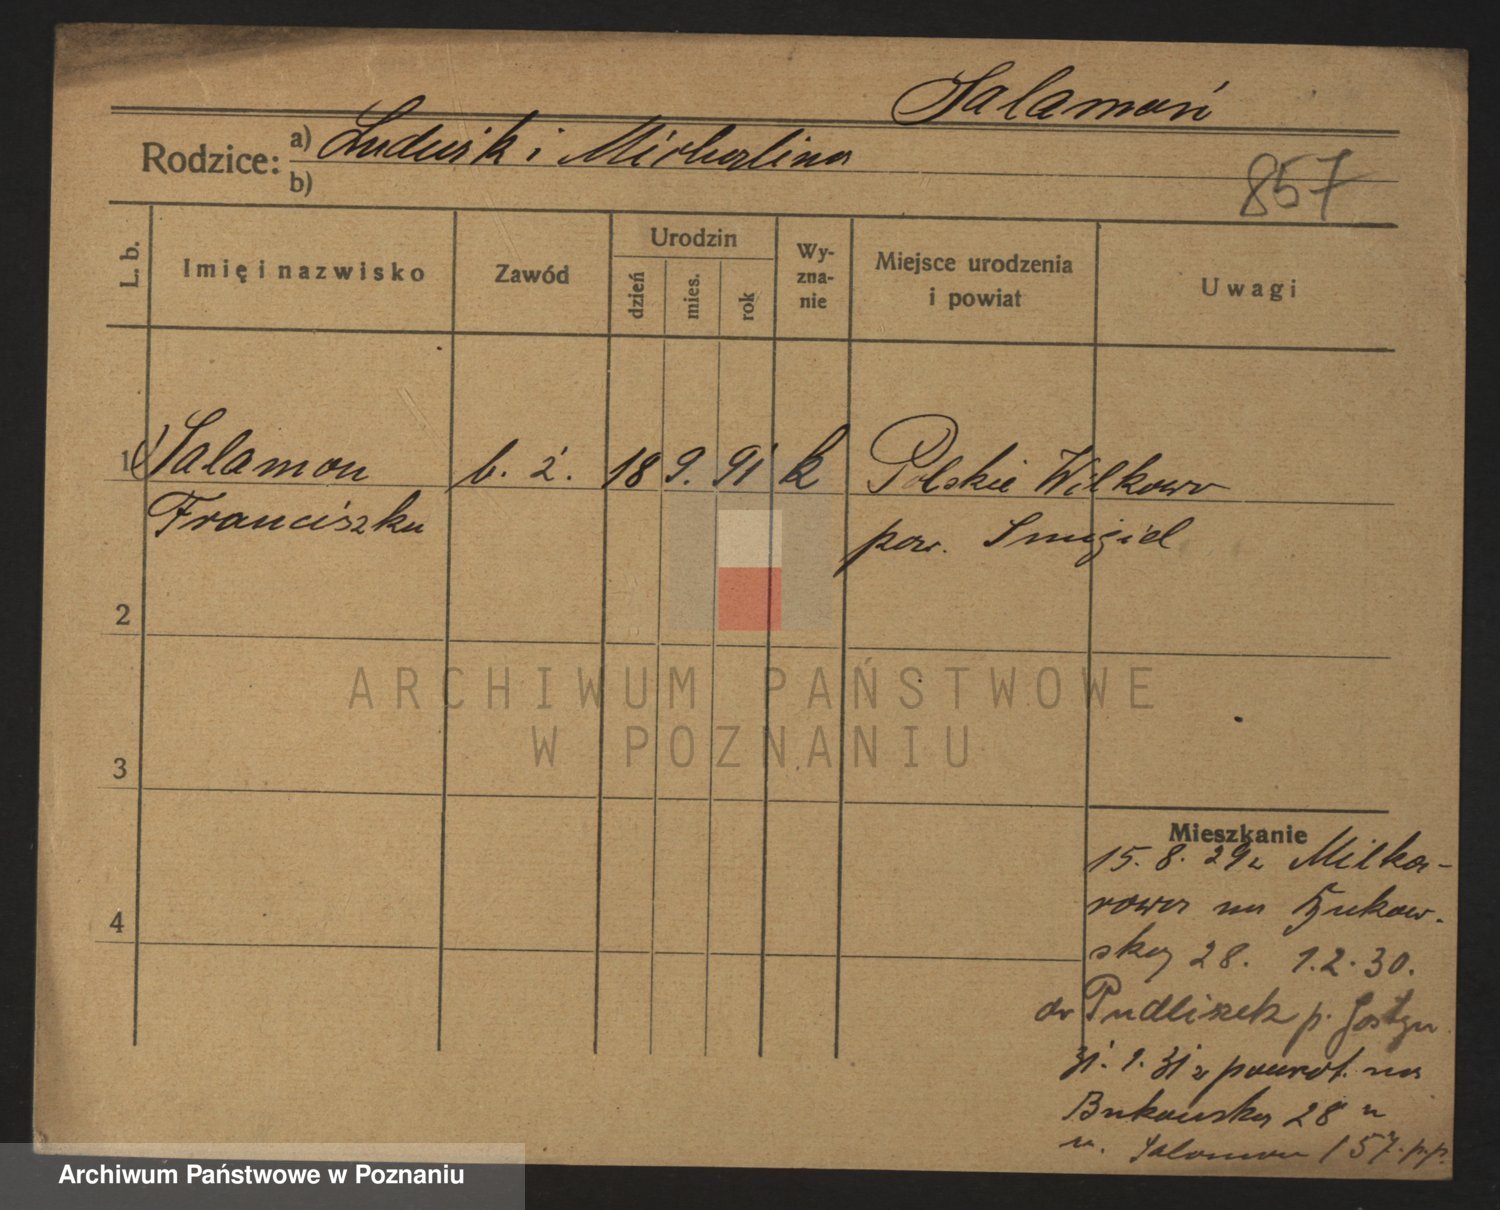 Salamoń
Rodzice: a) Ludwik i Michalina
b)
857
L. b.
Imię i nazwisko
Zawód
Urodzin
dzień
mies.
rok
Wy-
zna-
nie
Miejsce urodzenia
i powiat
Uwagi
1 Salamon b. z. 18 9. 91 k Polskie Wilkowo
Franciszka pow. Smigiel
2
3
4
Mieszkanie
15. 8. 29 z Milka-
rowa na Bukow-
ską 28. 1.2.30.
do Pudliszek p. Gostyn
31. 1. 31 z powrot. na
Bukowską 28
Salamon 157. p.p.
ARCHIWUM PAŃSTWOWE
W POZNANIU
Archiwum Państwowe w Poznaniu